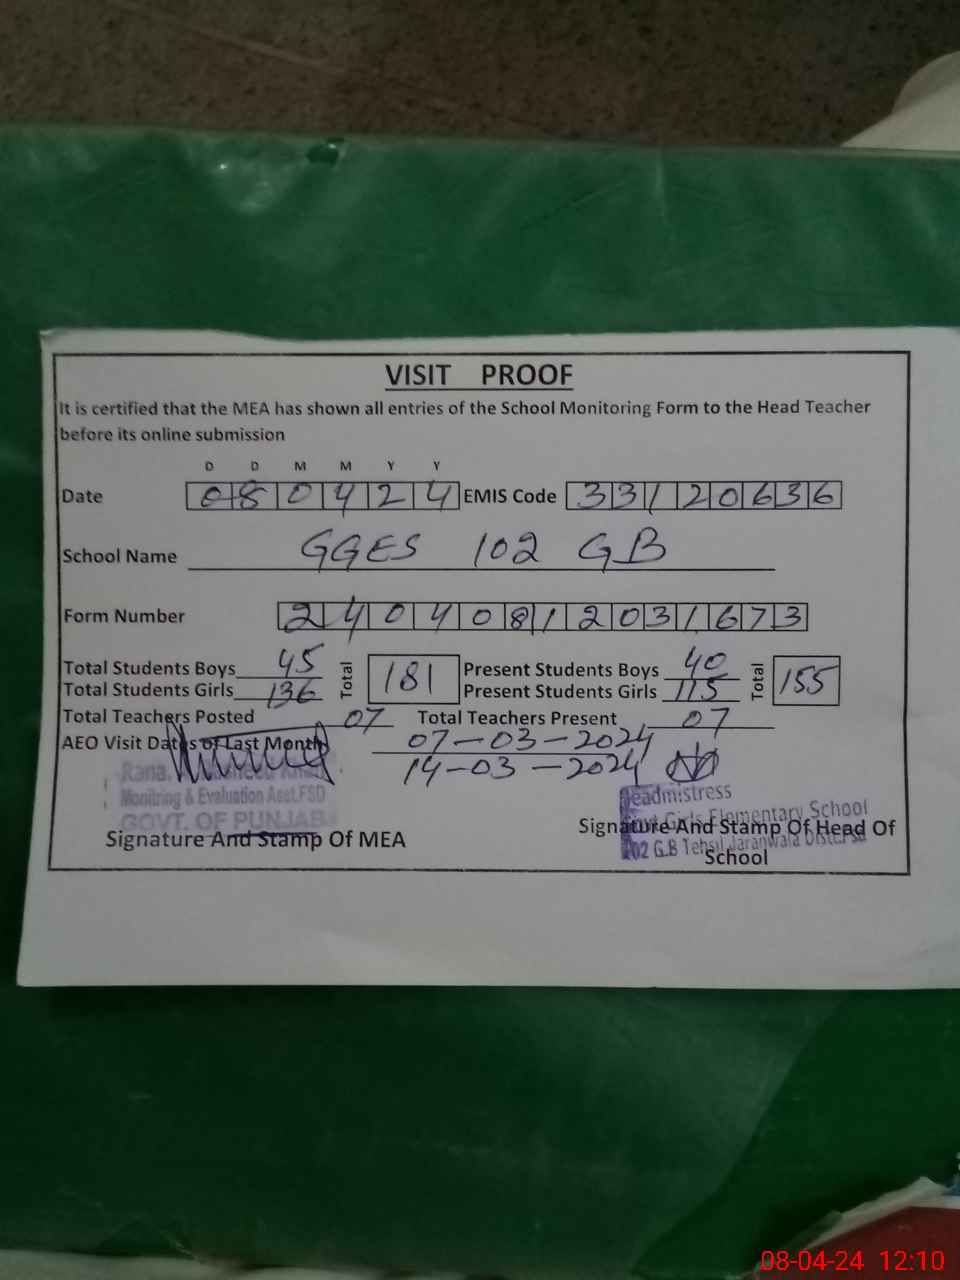 VISIT PROOF
It is certified that the MEA has shown all entries of the School Monitoring Form to the Head Teacher
before its online submission
D D M M Y Y
Date 080424 EMIS Code 33120636
School Name GGES 102 GB
Form Number 24040812031673
Total Students Boys 45 Total 181 Present Students Boys 40 Total 155
Total Students Girls 136 Present Students Girls 115
Total Teachers Posted 07 Total Teachers Present 07
AEO Visit Dates of Last Month 07-03-2024
14-03-2024
Rana.
Monitring & Evaluation Asst.FSD
GOVT. OF PUNJAB
Signature And Stamp Of MEA
Headmistress
Girls Elementary School
102 G.B Tehsil Jaranwala Distt.Fsd
Signature And Stamp Of Head Of
School
08-04-24 12:10